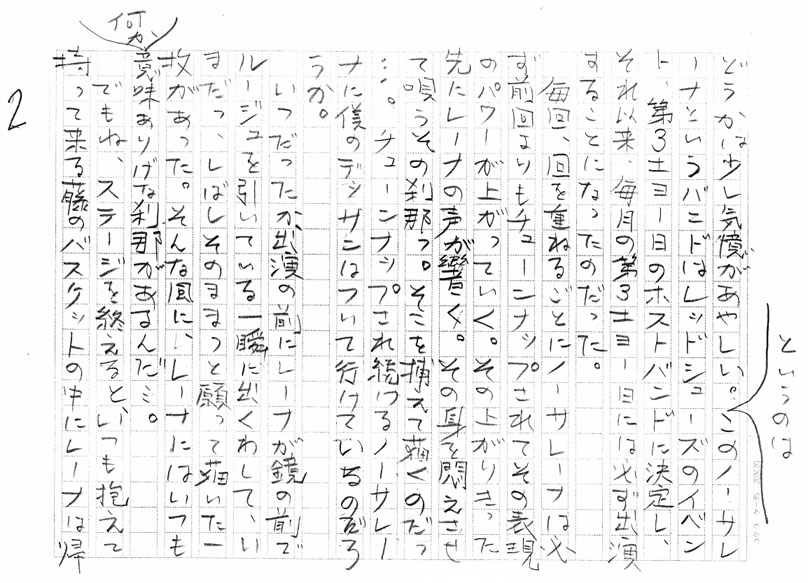 というのは
どうかは少し気憶があやしい。このノーサレ
ーナというバンドはレッドシューズのイベン
ト、第3土ヨー日のホストバンドに決定し、
それ以来、毎月の第3土ヨー日には必ず出演
することになったのだった。
毎回、回を重ねるごとにノーサレーナは必
ず前回よりもチューンナップされてその表現
のパワーが上がっていく。その上がりきった
先にレーナの声が響く。その身を悶えさせ
て唄うその刹那っ。そこを捕えて描くのだっ
…。チューンナップされ続けるノーサレー
ナに僕のデッサンはついて行けているのだろ
うか。
いつだったか出演の前にレーナが鏡の前で
ルージュを引いている一瞬に出くわして、い
まだっ、しばしそのままっと願って描いた一
枚があった。そんな風に、レーナにはいつも
何か
意味ありげな刹那があるんだ…。
でもね、ステージを終えると、いつも抱えて
持って来る藤のバスケットの中にレーナは帰
2